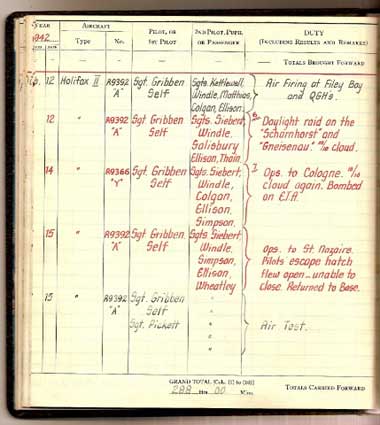 YEAR AIRCRAFT PILOT, OR 2ND PILOT, PUPIL DUTY
1942 Type No. 1ST PILOT OR PASSENGER (INCLUDING RESULTS AND REMARKS)
— — — — — TOTALS BROUGHT FORWARD
12 Halifax II R9392 Sgt. Gribben Sgts. Kettlewell, Air Firing at Filey Bay
"A" Self Windle, Matthias, and QGH's.
Colgan, Ellison.
12 " R9392 Sgt. Gribben Sgts. Siebert, Daylight raid on the
"A" Self Windle. "Scharnhorst" and
Salisbury "Gneisenau." 10/10 cloud.
Ellison, Thain.
14 " R9366 Sgt. Gribben Sgts. Siebert, Ops. to Cologne. 10/10
"Y" Self Windle, cloud again. Bombed
Colgan, on E.T.A.
Ellison,
Simpson.
15 " R9392 Sgt. Gribben Sgts. Siebert
"A" Self Windle. Ops. to St. Nazaire.
Simpson, Pilots escape hatch
Ellison, flew open – unable to
Wheatley close. Returned to Base.
15 " R9392 Sgt. Gribben "
"A" Self "
Sgt. Pickett " Air Test.
"
"
GRAND TOTAL [Cols. (1) to (10)]
288 Hrs. 00 Mins. TOTALS CARRIED FORWARD